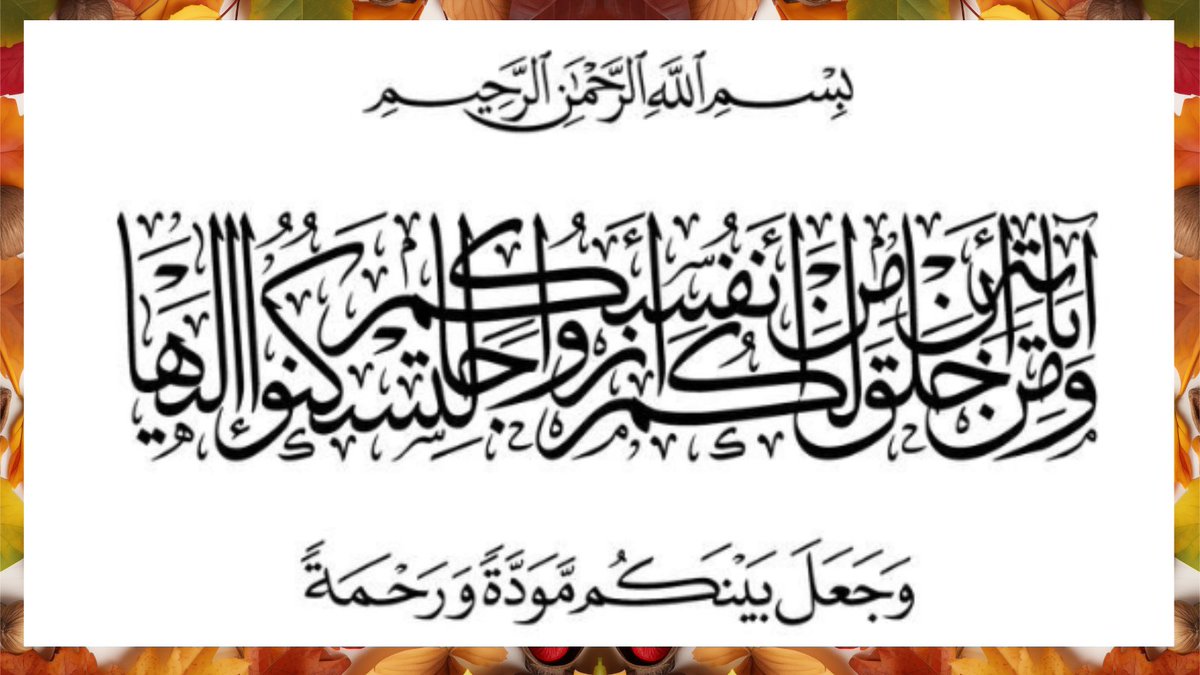 بِسْمِ ٱللَّهِ ٱلرَّحْمَٰنِ ٱلرَّحِيمِ
وَمِنْ آيَاتِهِ أَنْ خَلَقَ لَكُم مِّنْ أَنفُسِكُمْ أَزْوَاجًا لِّتَسْكُنُوا إِلَيْهَا
وَجَعَلَ بَيْنَكُم مَّوَدَّةً وَرَحْمَةً